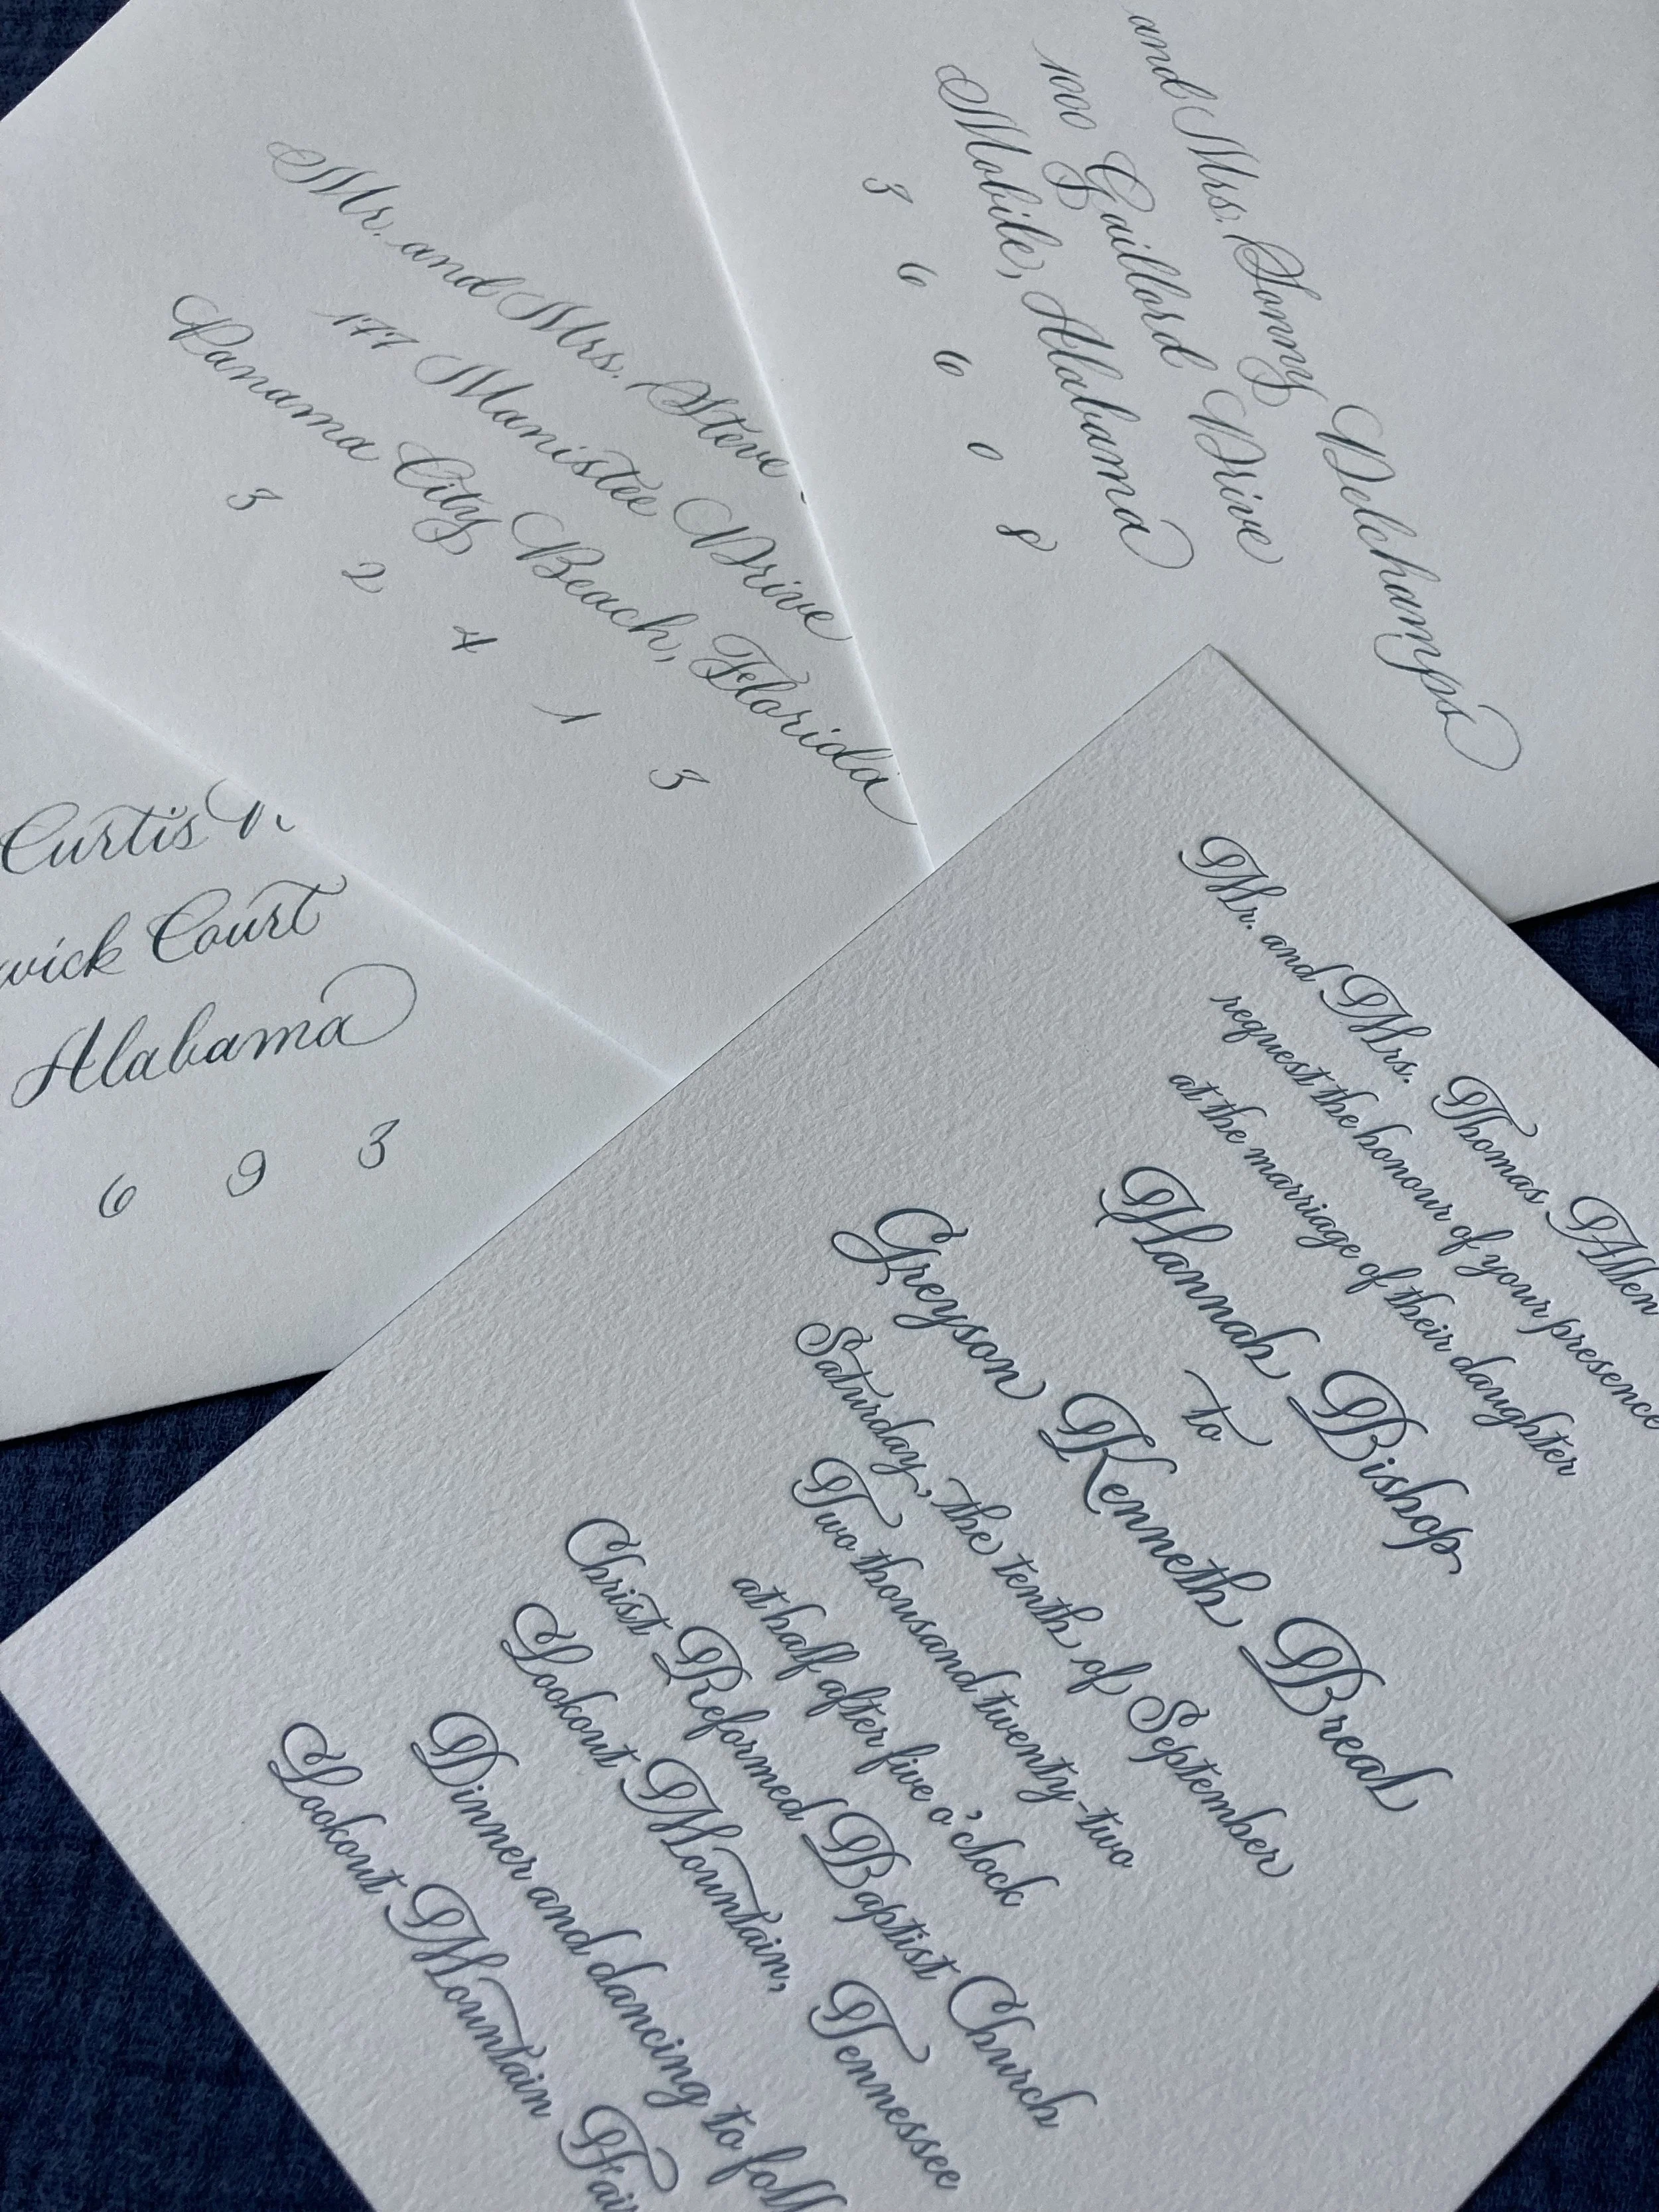 and Mrs. Sonny Delchamps
1000 Gaillord Drive
Mobile, Alabama
3 6 6 0 8
Mr. and Mrs. Steve
177 Manistee Drive
Panama City Beach, Florida
3 2 4 1 3
Curtis
wick Court
Alabama
6 9 3
Mr. and Mrs. Thomas Allen
request the honour of your presence
at the marriage of their daughter
Hannah Bishop
to
Greyson Kenneth Breal
Saturday, the tenth of September
Two thousand twenty-two
at half after five o'clock
Christ Reformed Baptist Church
Lookout Mountain, Tennessee
Dinner and dancing to foll
Lookout Mountain Fai